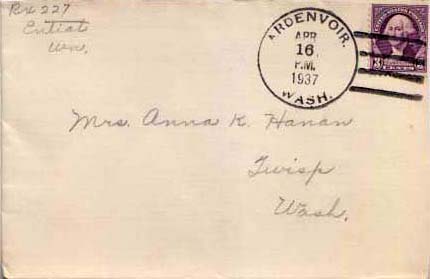 Bx 227
Entiat
Wn.
ARDENVOIR.
APR
16
P.M.
1937
WASH.
3
Mrs. Anna K. Hanan
Twisp
Wash.